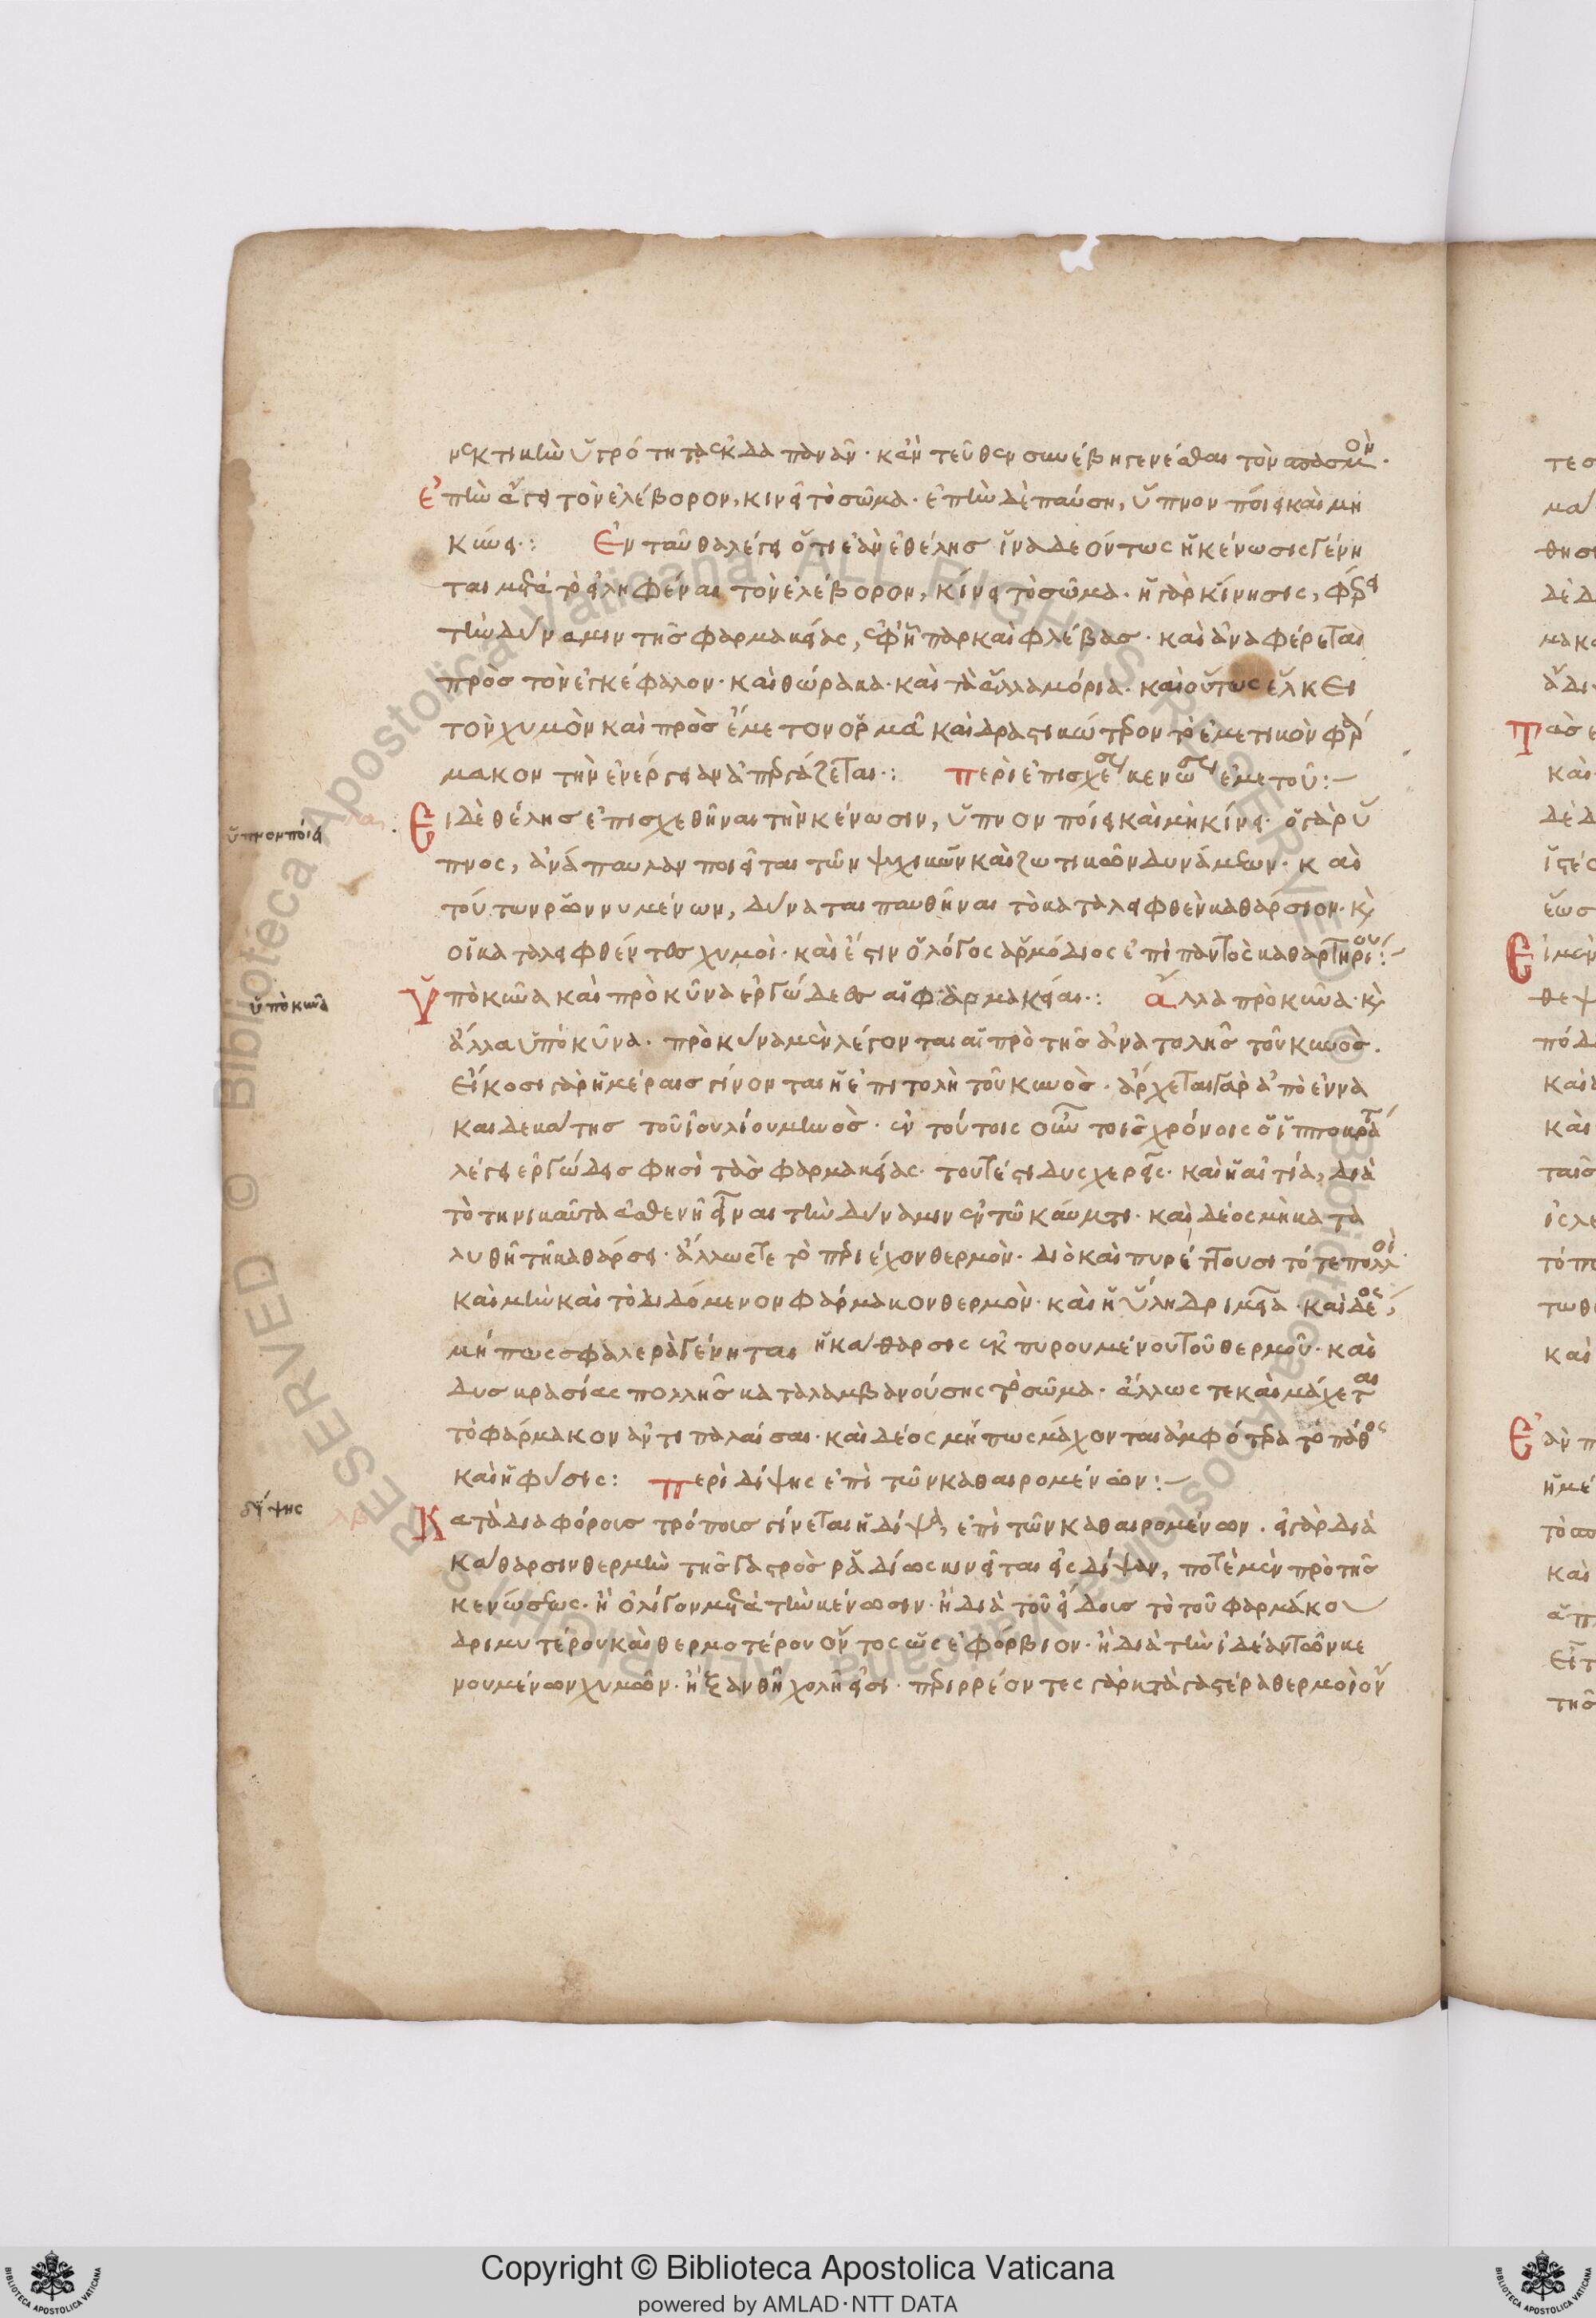 νεκτικὴν ὑγρότητα ἐκδαπανᾶν· κἀντεῦθεν συνέβη γενέσθαι τὸν σπασμόν·
ἐπὴν ἄγῃ τὸν ἐλέβορον, κινεῖ τὸ σῶμα· ἐπὴν δὲ παύσῃ, ὕπνον ποίει καὶ μὴ
κίνει·: Ἐνταῦθα λέγει ὅτι ἐὰν ἐθέλης ἵνα δεόντως ἡ κένωσις γένη
ται μετὰ τὸ εἰληφέναι τὸν ἐλέβορον, κίνει τὸ σῶμα· ἡ γὰρ κίνησις, φέρει
τὴν δύναμιν τῆς φαρμακείας, ἐφ' ἧπαρ καὶ φλέβας· καὶ ἀναφέρεται
πρὸς τὸν ἐγκέφαλον· καὶ θώρακα· καὶ τὰ ἄλλα μόρια· καὶ οὕτως ἕλκει
τὸν χυμὸν καὶ πρὸς ἔμετον ὁρμᾶ καὶ δραστικώτερον τὸ ἐμετικὸν φάρ
μακον τὴν ἐνέργειαν ἀπεργάζεται·: περὶ ἐπισχέσεως κενώσεως ἐμετοῦ:
Εἰ δὲ θέλης ἐπισχεθῆναι τὴν κένωσιν, ὕπνον ποίει καὶ μὴ κίνει· ὁ γὰρ ὕ
πνος, ἀνάπαυλαν ποιεῖται τῶν ψυχικῶν καὶ ζωτικῶν δυνάμεων· καὶ
τούτων ῥωννυμένων, δύναται παυθῆναι τὸ καταλειφθὲν καθάρσιον· καὶ
οἱ καταλειφθέντες χυμοὶ· καὶ ἔστιν ὁ λόγος ἁρμόδιος ἐπὶ παντὸς καθαρτηρίου:
Ὑπὸ κύνα καὶ πρὸ κῦνα ἐργώδεες αἱ φαρμακεῖαι·: ἄλλα πρὸ κύνα· καὶ
ἄλλα ὑπὸ κῦνα· πρὸ κύνα μὲν λέγονται αἱ πρὸ τῆς ἀνατολῆς τοῦ κυνὸς·
εἴκοσι γὰρ ἡμέραις γίνονται ἡ ἐπιτολὴ τοῦ κυνὸς· ἄρχεται γὰρ ἀπὸ ἐννα
καιδεκάτης τοῦ ἰουλίου μηνὸς· ἐν τούτοις οὖν τοῖς χρόνοις ὁ ἱπποκράτης
λέγει ἐργώδεις φησὶ τὰς φαρμακείας· τουτέστι δυσχερεῖς· καὶ ἡ αἰτία, διὰ
τὸ τηνικαῦτα ἀσθενῆ εἶναι τὴν δύναμιν ἐν τῶ καύματι· καὶ δέος μὴ κατα
λυθῆ τῆ καθάρσει· ἄλλως τε τὸ περιέχον θερμὸν· διὸ καὶ πυρέττουσι τότε πολλοὶ·
καὶ μὴν καὶ τὸ διδόμενον φάρμακον θερμὸν· καὶ ἡ ὕλη δριμεῖα· καὶ δέος
μή πως σφαλερὰ γένηται ἡ κάθαρσις ἐκπυρουμένου τοῦ θερμοῦ· καὶ
δυσκρασίας πολλῆς καταλαμβανούσης τὸ σῶμα· ἄλλως τε καὶ μάχεται
τὸ φάρμακον ἀντιπαλαίσαι· καὶ δέος μή πως μάχονται ἀμφότερα τὸ πάθος
καὶ ἡ φύσις: περὶ δίψης ἐπὶ τῶν καθαιρομένων:
Κατὰ διαφόροις τρόποις γίνεται ἡ δίψα, ἐπὶ τῶν καθαιρομένων· εἰ γὰρ διὰ
κάθαρσιν θερμὴν τῆς γαστρὸς ῥᾳδίως κινεῖται εἰς δίψαν, ποτὲ μὲν πρὸ τῆς
κενώσεως· ἢ ὀλίγον μετὰ τὴν κένωσιν· ἢ διὰ τοῦ εἴδοις τὸ τοῦ φαρμάκου
δριμυτέρου καὶ θερμοτέρου ὄντος ὡς ἐφόρβιον· ἢ διὰ τὴν ἰδέαν τῶν κε
νουμένων χυμῶν· ἢ ξανθῆ χολῆ εἰσι· περιρρέοντες γὰρ κατὰ γαστέρα θερμοὶ οὖν
ὕπνον ποίει
ὑπὸ κύνα
δίψης